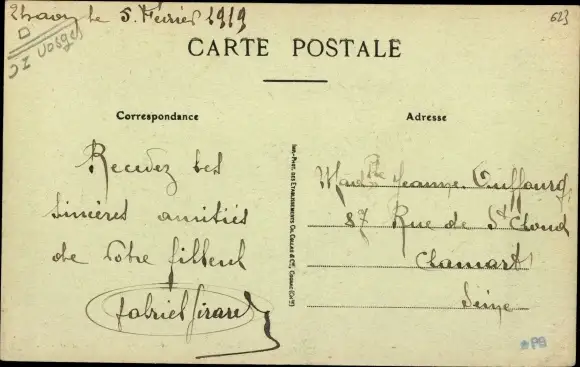 Thaon le 5 Février 1919
623
Vosges
CARTE POSTALE
Correspondance
Adresse
Recevez les
sincères amitiés
de votre filleul
Gabriel Girard
IMP.-PHOT. DES ETABLISSEMENTS CH. COLLAS & Cie, COGNAC (Chte)
Jeanne
87 Rue de St Cloud
Clamart
Seine